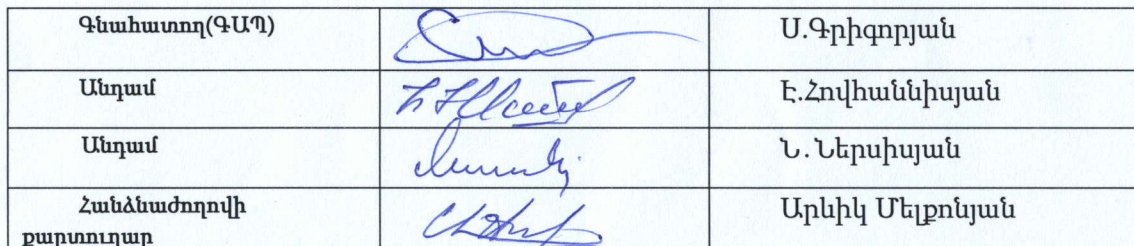 Գնահատող(ԳԱՊ) Ս.Գրիգորյան
Անդամ Է.Հովհաննիսյան
Անդամ Ն.Ներսիսյան
Հանձնաժողովի Արևիկ Մելքոնյան
քարտուղար